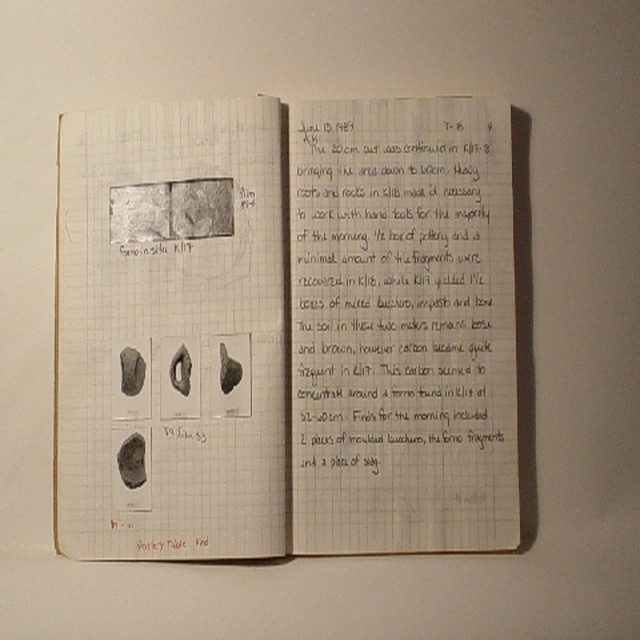 film
forno in situ K/17
89 film 33
Pottery Table Find
June 15, 1989 T-8 9
A.M.
The 20cm cut was continued in K/17-8
bringing the area down to 60cm. Heavy
roots and rocks in K/18 made it necessary
to work with hand tools for the majority
of the morning. 1/2 box of pottery and a
minimal amount of tile fragments were
recovered in K/18, while K/17 yielded 1 1/2
boxes of mixed bucchero, impasto and bone.
The soil in these two meters remains loose
and brown, however carbon became quite
frequent in K/17. This carbon seemed to
concentrate around a forno found in K/17 at
52-60cm. Finds for the morning included
2 pieces of moulded bucchero, the forno fragments
and a piece of slag.